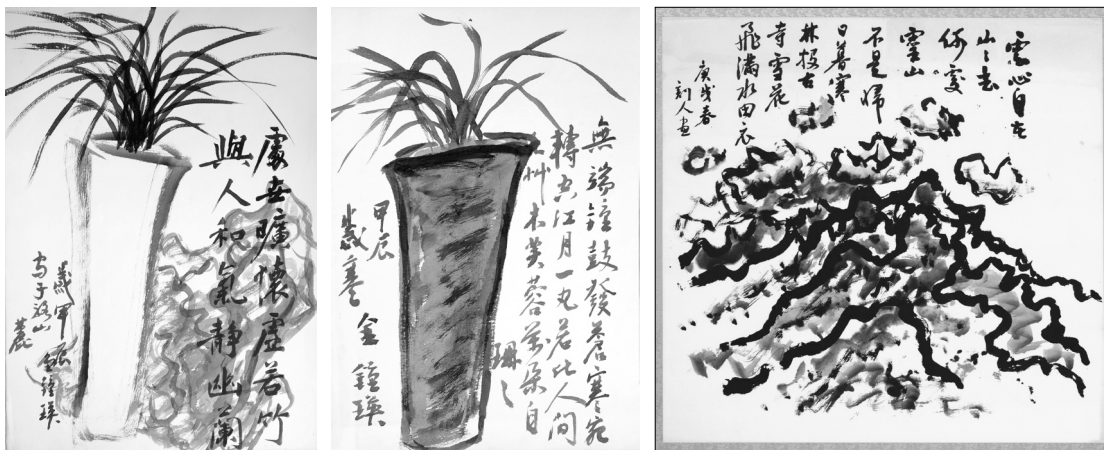 處世曠懷虛若竹
與人和氣靜幽蘭
歲甲辰 金鐘瑛
山
麓
無端鐘鼓發蒼寒宛
轉空江月一丸若比人间
艸木芙蓉萬朵自
珊〻
甲辰
歲寒 金鐘瑛
雲心自在
山〻去
何處
靈山
不是歸
日暮寒
林投古
寺雪花
飛滿水田衣
庚戌春
人畫